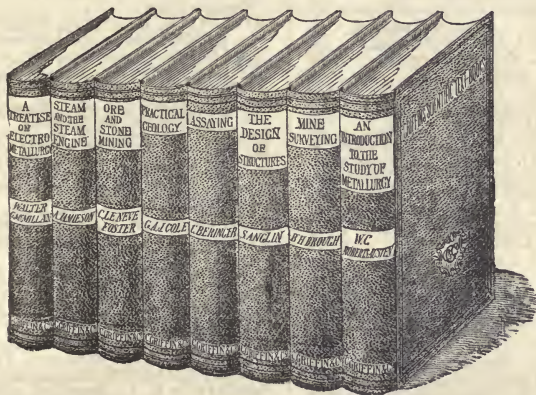 A
TREATISE
ON
ELECTRO
METALLURGY
WALTER
G. MCMILLAN
C. GRIFFIN & Co
STEAM
AND THE
STEAM
ENGINE
A. JAMIESON
C. GRIFFIN & Co
ORE
AND
STONE
MINING
C. LE NEVE
FOSTER
C. GRIFFIN & Co
PRACTICAL
GEOLOGY
G.A.J. COLE
C. GRIFFIN & Co
ASSAYING
C. BERINGER
C. GRIFFIN & Co
THE
DESIGN
OF
STRUCTURES
S. ANGLIN
C. GRIFFIN & Co
MINE
SURVEYING
B H BROUGH
C. GRIFFIN & Co
AN
INTRODUCTION
TO THE
STUDY OF
METALLURGY
W.C
ROBERTS-AUSTEN
C. GRIFFIN & Co
SCIENTIFIC TEXT-BOOKS